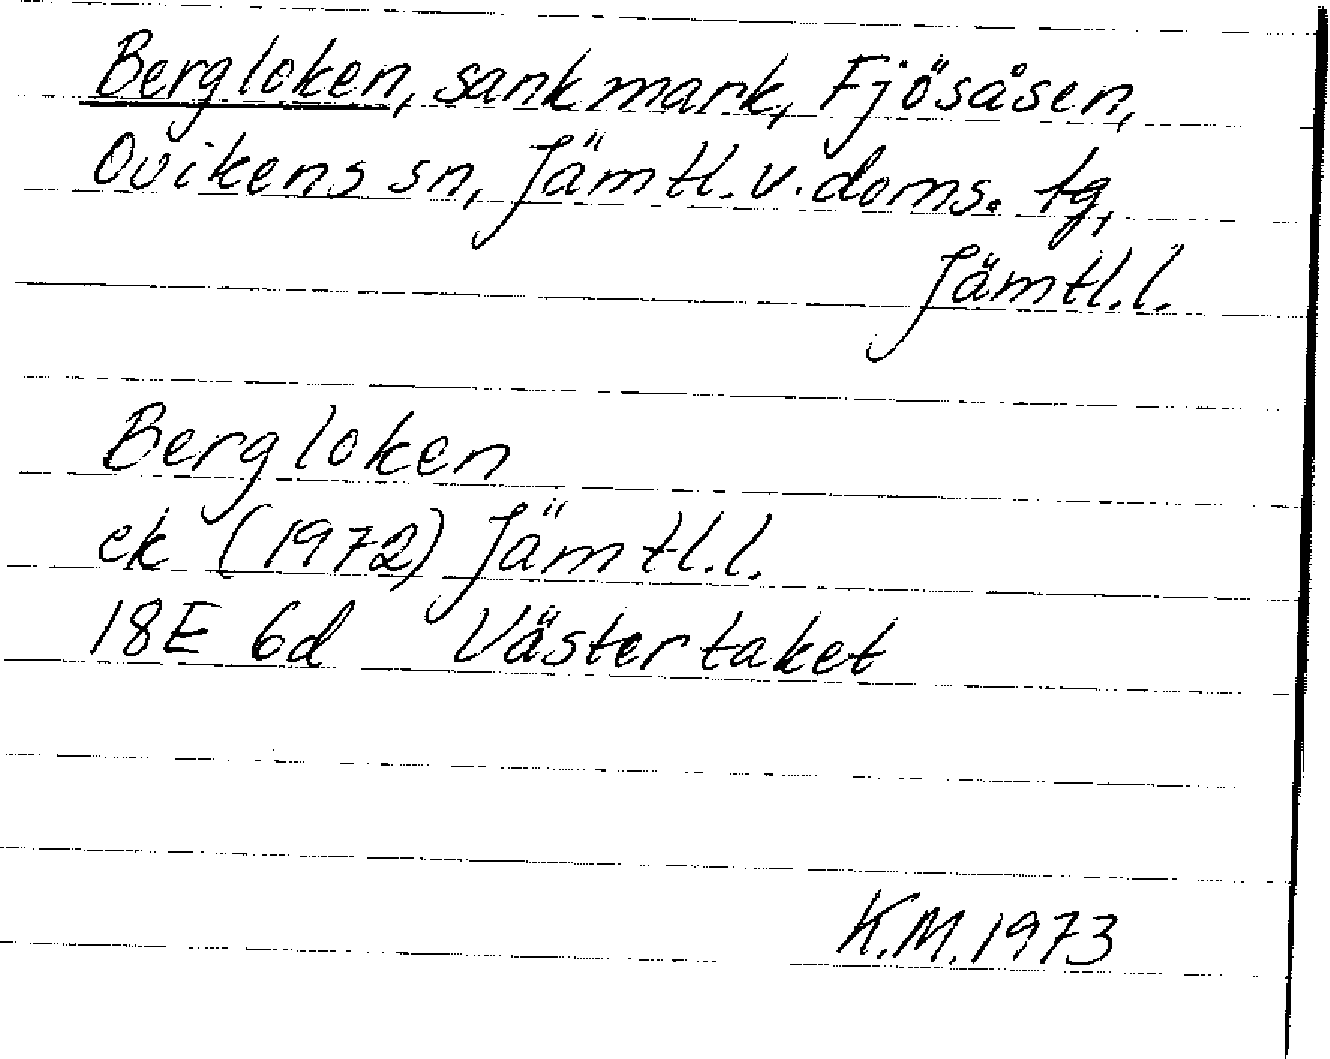 Bergloken, sankmark, Fjösåsen,
Ovikens sn, Jämtl. v. doms. tg,
Jämtl.l.
Bergloken
ek (1972) Jämtl.l.
18E 6d Västertaket
K.M. 1973